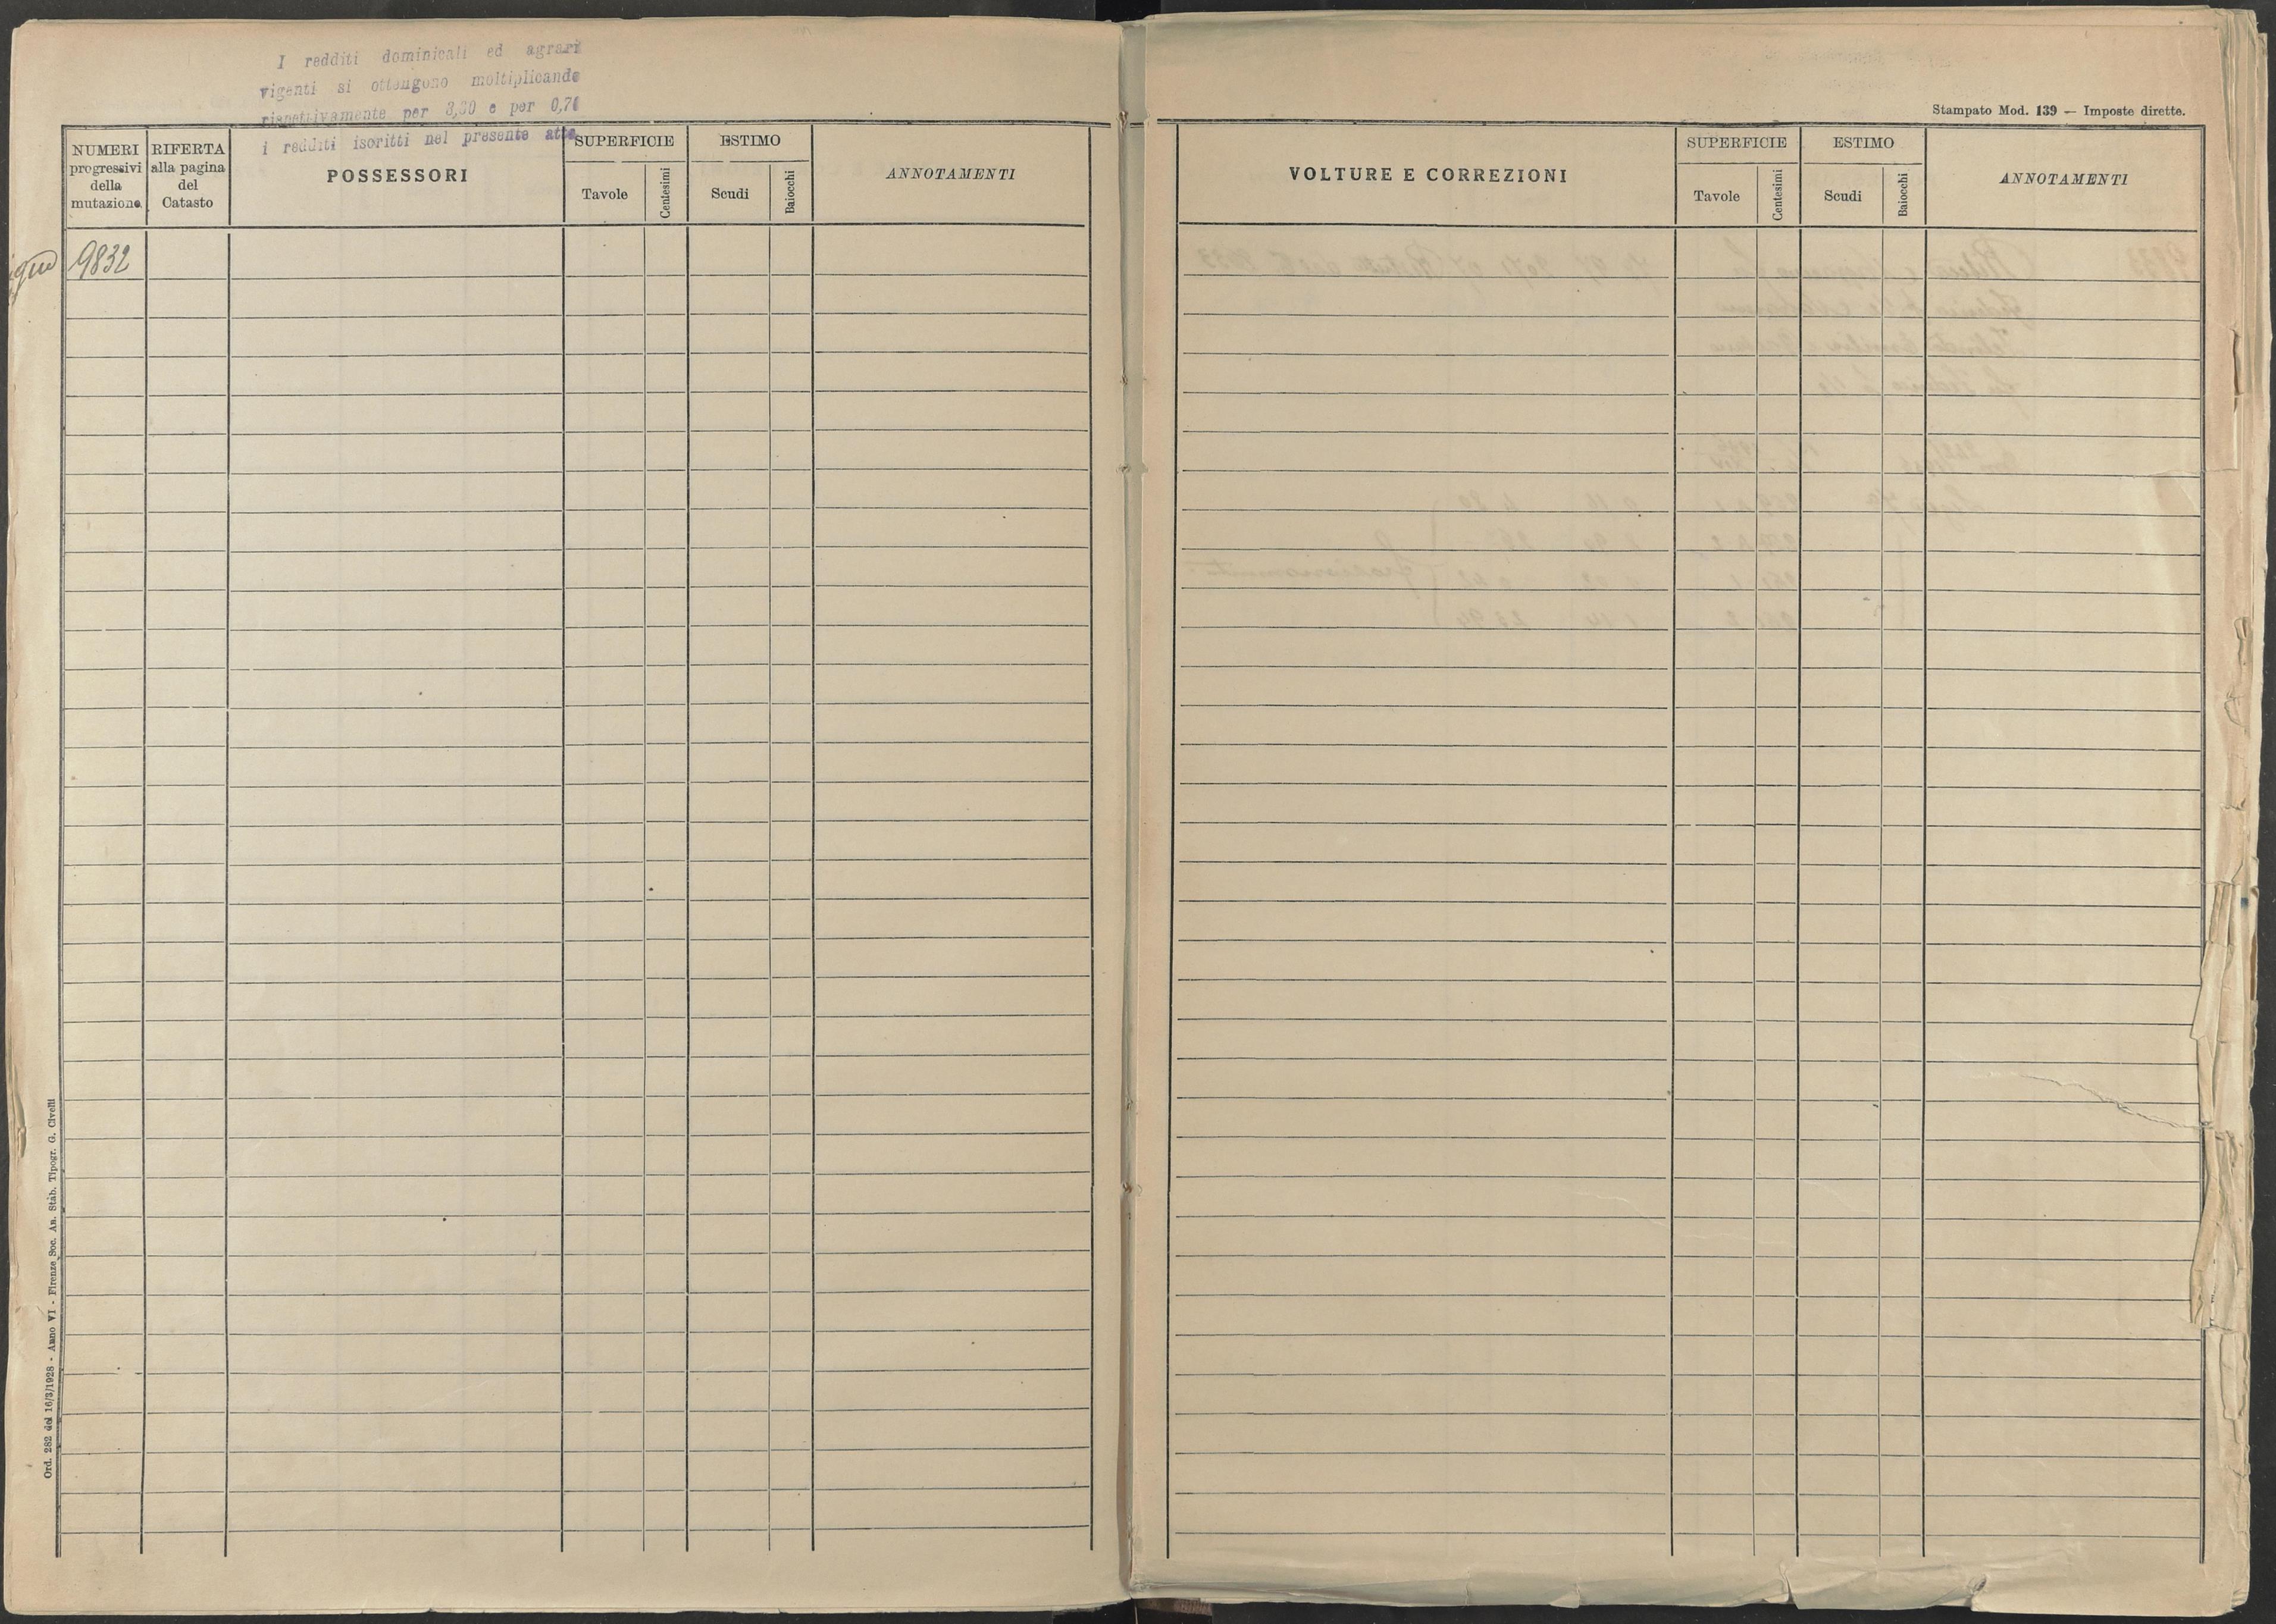 I redditi dominicali ed agrari
vigenti si ottengono moltiplicando
rispettivamente per 3,30 e per 0,76
i redditi iscritti nel presente atto
NUMERI progressivi della mutazione
RIFERTA alla pagina del Catasto
POSSESSORI
SUPERFICIE
Tavole
Centesimi
ESTIMO
Scudi
Baiocchi
ANNOTAMENTI
9832
Ord. 282 del 16/3/1928 - Anno VI - Firenze, Soc. An. Stab. Tipogr. G. Civelli
Stampato Mod. 139 — Imposte dirette.
VOLTURE E CORREZIONI
SUPERFICIE
Tavole
Centesimi
ESTIMO
Scudi
Baiocchi
ANNOTAMENTI